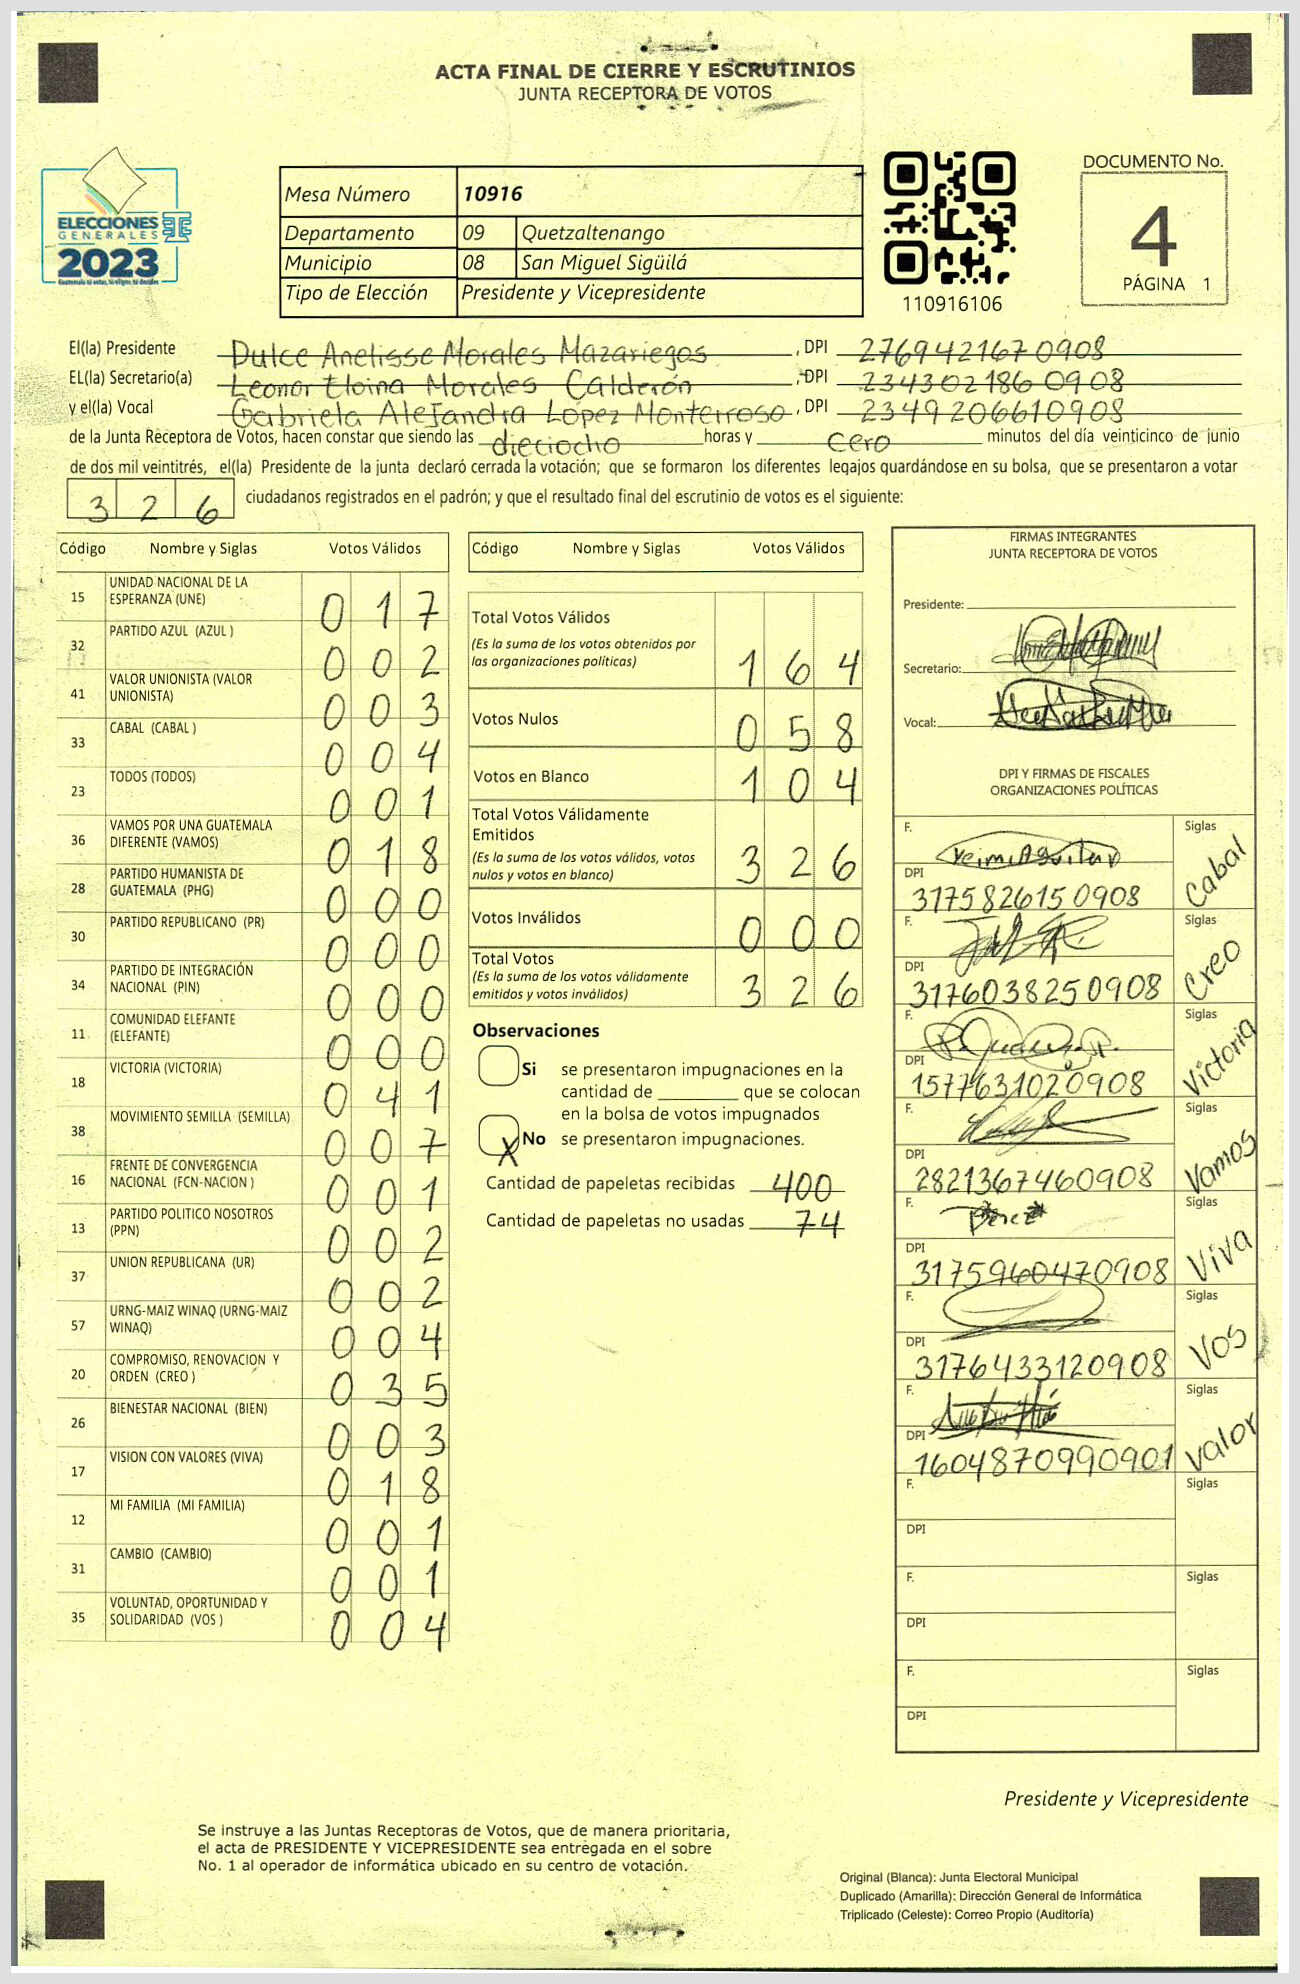 ACTA FINAL DE CIERRE Y ESCRUTINIOS
JUNTA RECEPTORA DE VOTOS
ELECCIONES
GENERALES
2023
Mesa Número 10916
Departamento 09 Quetzaltenango
Municipio 08 San Miguel Sigüilá
Tipo de Elección Presidente y Vicepresidente
110916106
DOCUMENTO No.
4
PÁGINA 1
El(la) Presidente Dulce Anelisse Morales Mazariegos, DPI 2769421670908
EL(la) Secretario(a) Leonor Eloina Morales Calderón, DPI 2343021860908
y el(la) Vocal Gabriela Alejandra López Monterroso, DPI 2349206610908
de la Junta Receptora de Votos, hacen constar que siendo las dieciocho horas y cero minutos del día veinticinco de junio
de dos mil veintitrés, el(la) Presidente de la junta declaró cerrada la votación; que se formaron los diferentes legajos quardándose en su bolsa, que se presentaron a votar
326 ciudadanos registrados en el padrón; y que el resultado final del escrutinio de votos es el siguiente:
Código Nombre y Siglas Votos Válidos
15 UNIDAD NACIONAL DE LA ESPERANZA (UNE) 017
32 PARTIDO AZUL (AZUL ) 002
41 VALOR UNIONISTA (VALOR UNIONISTA) 003
33 CABAL (CABAL ) 004
23 TODOS (TODOS) 001
36 VAMOS POR UNA GUATEMALA DIFERENTE (VAMOS) 018
28 PARTIDO HUMANISTA DE GUATEMALA (PHG) 000
30 PARTIDO REPUBLICANO (PR) 000
34 PARTIDO DE INTEGRACIÓN NACIONAL (PIN) 000
11 COMUNIDAD ELEFANTE (ELEFANTE) 000
18 VICTORIA (VICTORIA) 041
38 MOVIMIENTO SEMILLA (SEMILLA) 007
16 FRENTE DE CONVERGENCIA NACIONAL (FCN-NACION ) 001
13 PARTIDO POLITICO NOSOTROS (PPN) 002
37 UNION REPUBLICANA (UR) 002
57 URNG-MAIZ WINAQ (URNG-MAIZ WINAQ) 004
20 COMPROMISO, RENOVACION Y ORDEN (CREO ) 035
26 BIENESTAR NACIONAL (BIEN) 003
17 VISION CON VALORES (VIVA) 018
12 MI FAMILIA (MI FAMILIA) 001
31 CAMBIO (CAMBIO) 001
35 VOLUNTAD, OPORTUNIDAD Y SOLIDARIDAD (VOS ) 004
Código Nombre y Siglas Votos Válidos
Total Votos Válidos
(Es la suma de los votos obtenidos por
las organizaciones políticas) 164
Votos Nulos 058
Votos en Blanco 104
Total Votos Válidamente
Emitidos
(Es la suma de los votos válidos, votos
nulos y votos en blanco) 326
Votos Inválidos 000
Total Votos
(Es la suma de los votos válidamente
emitidos y votos inválidos) 326
Observaciones
Si se presentaron impugnaciones en la
cantidad de ________ que se colocan
en la bolsa de votos impugnados
X No se presentaron impugnaciones.
Cantidad de papeletas recibidas 400
Cantidad de papeletas no usadas 74
FIRMAS INTEGRANTES
JUNTA RECEPTORA DE VOTOS
Presidente:
Secretario:
Vocal:
DPI Y FIRMAS DE FISCALES
ORGANIZACIONES POLÍTICAS
F. Siglas Cabal
DPI 3175826150908
F. Siglas Creo
DPI 3176038250908
F. Siglas Victoria
DPI 1577631020908
F. Siglas Vamos
DPI 2821367460908
F. Siglas Viva
DPI 3175960470908
F. Siglas VOS
DPI 3176433120908
F. Siglas Valor
DPI 1604870990901
F. Siglas
DPI
F. Siglas
DPI
F. Siglas
DPI
Presidente y Vicepresidente
Se instruye a las Juntas Receptoras de Votos, que de manera prioritaria,
el acta de PRESIDENTE Y VICEPRESIDENTE sea entregada en el sobre
No. 1 al operador de informática ubicado en su centro de votación.
Original (Blanca): Junta Electoral Municipal
Duplicado (Amarilla): Dirección General de Informática
Triplicado (Celeste): Correo Propio (Auditoría)